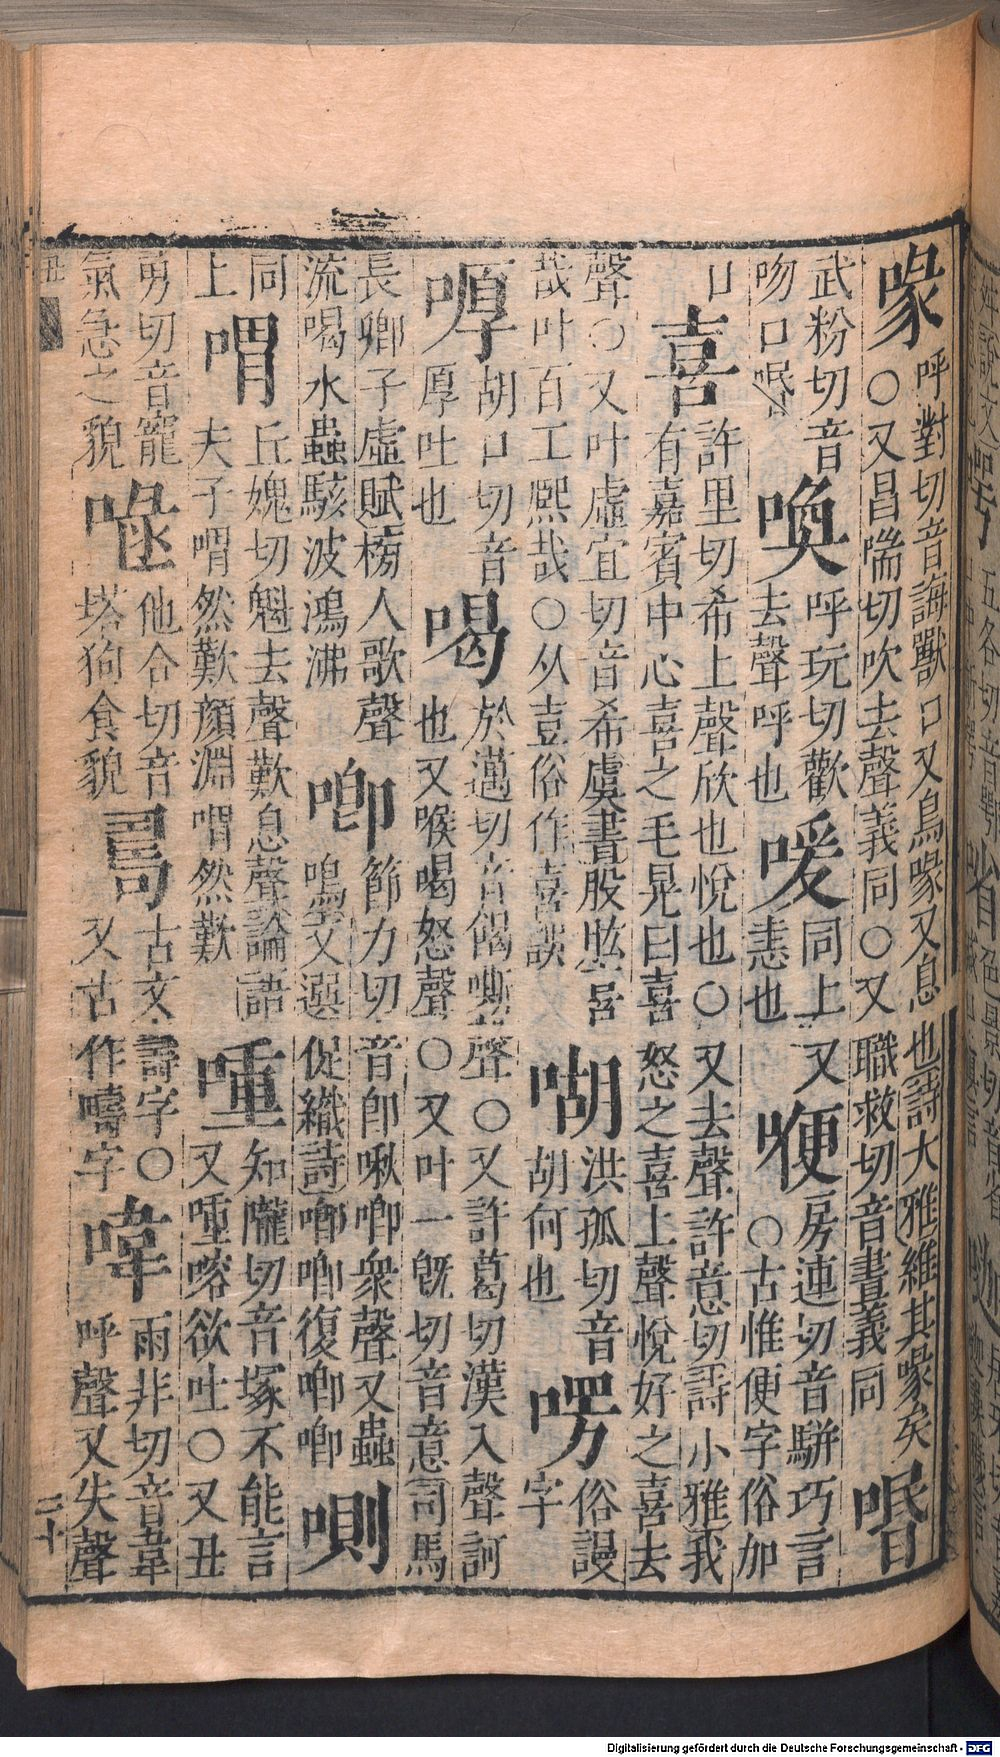 喙呼對切音誨獸口又鳥喙又息也詩大雅維其喙矣
○又昌喘切吹去聲義同○又職救切音晝義同
㗃武粉切音
吻口㗃
喚呼玩切歡
去聲呼也
喛同上又
恚也
房連切音駢巧言
○古惟便字俗加
口
喜許里切希上聲欣也悅也○又去聲許意切詩小雅我
有嘉賓中心喜之毛晃曰喜怒之喜上聲悅好之喜去
聲○又叶虛宜切音希虞書股肱喜
哉叶百工熙哉○从壴俗作喜誤
喖洪孤切音
胡何也
㗁俗謣
字
㖃胡口切音
厚吐也
喝於邁切音餲嘶聲○又許葛切漢入聲訶
也又喉喝怒聲○又叶一旣切音意司馬
長卿子虛賦榜人歌聲
流喝水蟲駭波鴻沸
喞節力切音卽啾喞衆聲又蟲
鳴文選促織詩喞喞復喞喞
同
上
喟丘媿切魁去聲歎息聲論語
夫子喟然歎顏淵喟然歎
喠知隴切音塚不能言
又喠㗒欲吐○又丑
勇切音寵
氣急之貌
他合切音
塔狗食貌
古文壽字○
又古作嚋字
喡雨非切音韋
呼聲又失聲
丑
二十
Digitalisierung gefördert durch die Deutsche Forschungsgemeinschaft - DFG